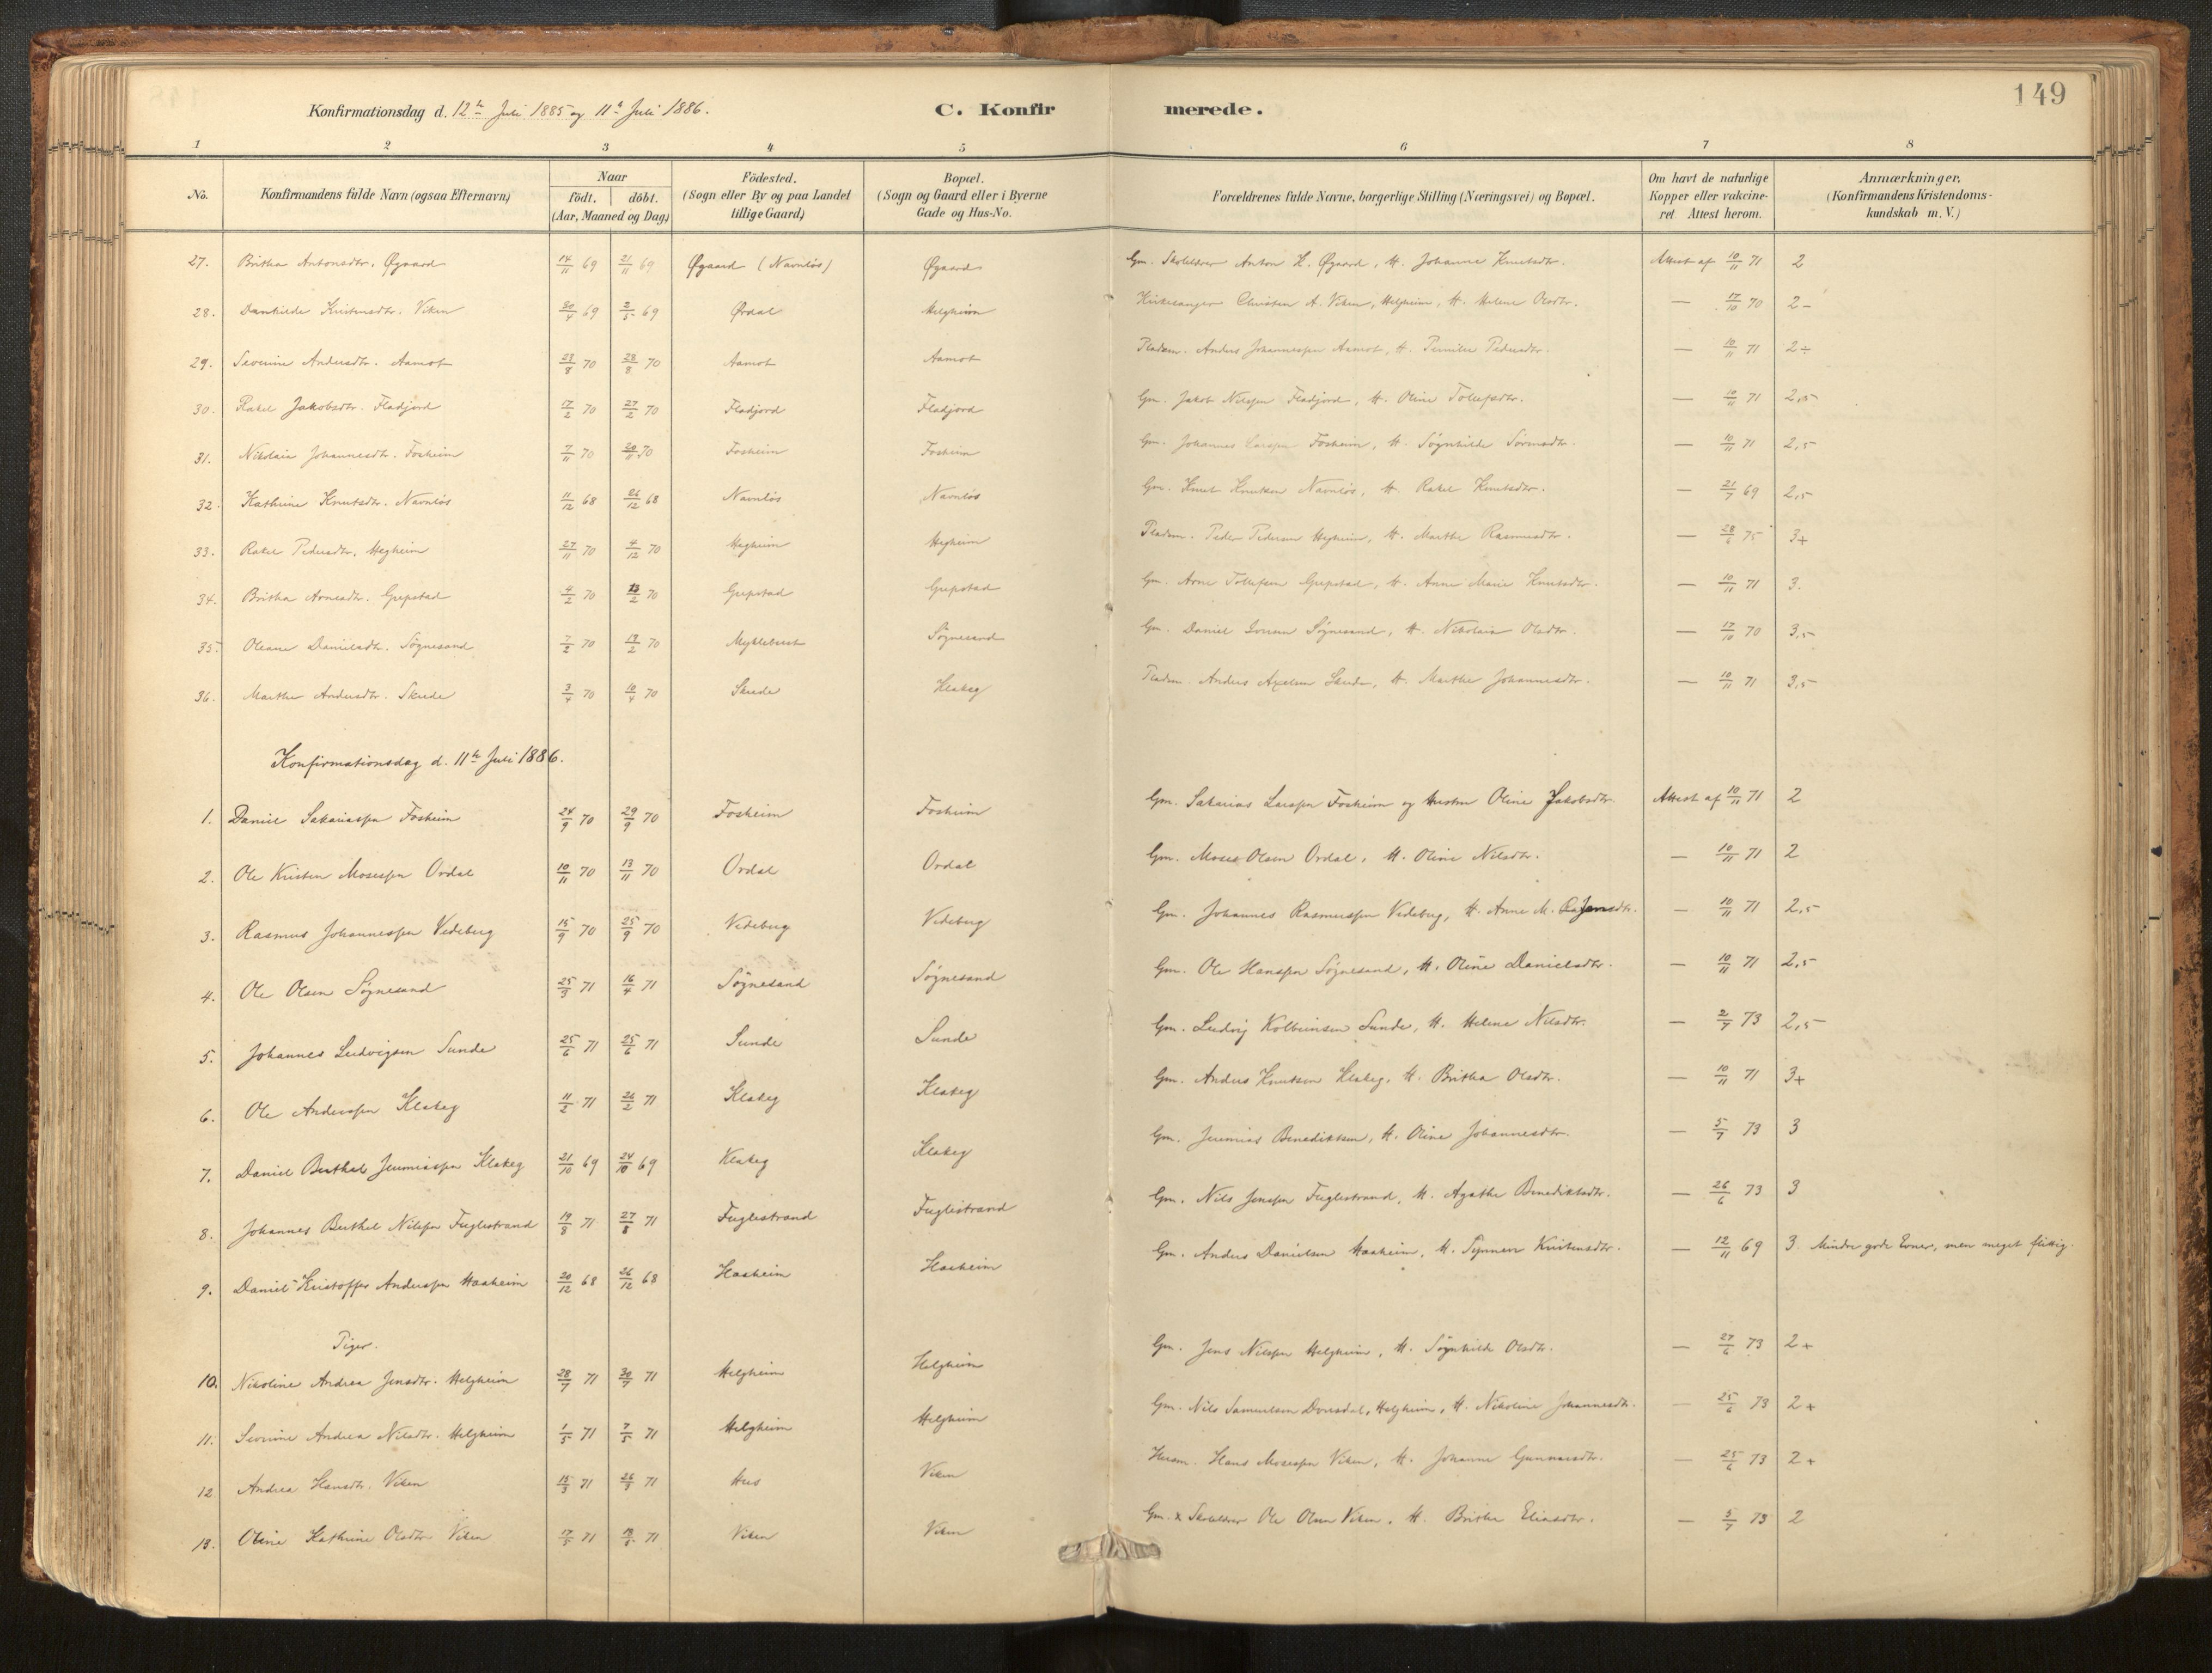 149
Konfirmationsdag d. 12te Juli 1885 og 11te Juli 1886.
C. Konfirmerede.
1 2 3 4 5 6 7 8
No. Konfirmandens fulde Navn (ogsaa Efternavn) Naar født. døbt. (Aar, Maaned og Dag) Födested. (Sogn eller By og paa Landet tillige Gaard) Bopæl. (Sogn og Gaard eller i Byerne Gade og Hus-No. Forældrenes fulde Navne, borgerlige Stilling (Næringsvei) og Bopæl. Om havt de naturlige Kopper eller vakcineret Attest herom. Anmærkninger, (Konfirmandens Kristendomskundskab m. V.)
27. Britha Antonsdtr. Øgaard 14/11 69 21/11 69 Øgaard (Navnløs) Øgaard Gm. Skolelærer Anton K. Øgaard, H. Johanne Knutsdtr. Attest af 10/11 71 2
28. Danhilde Kristensdtr. Viken 30/4 69 2/5 69 Ørdal Helgheim Kirkesanger Christen A. Viken, Helgheim, H. Helene Olsdtr. — 17/10 70 2-
29. Severine Andersdtr. Aamot 23/8 70 28/8 70 Aamot Aamot Pladsm. Anders Johannessen Aamot, H. Pernille Pedersdtr. — 10/11 71 2÷
30. Rakel Jakobsdtr. Fladjord 17/2 70 27/2 70 Fladjord Fladjord Gm. Jakob Nilssen Fladjord, H. Oline Tollefsdtr. — 10/11 71 2,5
31. Nikolaia Johannesdtr. Fosheim 7/11 70 20/11 70 Fosheim Fosheim Gm. Johannes Larssen Fosheim, H. Søgnhilde — 10/11 71 2,5
32. Kathrine Knutsdtr. Navnløs 11/12 68 26/12 68 Navnløs Navnløs Gm. Knut Knutsen Navnløs, H. Rakel Knutsdtr. — 21/7 69 2,5
33. Rakel Pedersdtr. Hegheim 27/11 70 4/12 70 Hegheim Hegheim Pladsm. Peder Pedersen Hegheim, H. Marthe Rasmusdtr. — 28/6 75 3+
34. Britha Arnesdtr. Grepstad 4/2 70 13/2 70 Grepstad Grepstad Gm. Arne Tollefsen Grepstad, H. Anne Marie Knutsdtr. — 10/11 71 3.
35. Oleane Danielsdtr. Søgnesand 7/2 70 13/2 70 Myklebust Søgnesand Gm. Daniel Søgnesand, H. Nikolaia Olsdtr. — 17/10 70 3,5
36. Marthe Andersdtr. Skrede 3/4 70 10/4 70 Skrede Klakeg Pladsm. Anders Axelsen Skrede, H. Marthe Johannesdtr. — 10/11 71 3,5
Konfirmationsdag d. 11te Juli 1886.
1. Daniel Sakariassen Fosheim 24/9 70 29/9 70 Fosheim Fosheim Gm. Sakarias Larssen Fosheim og Hustru Oline Jakobsdtr. Attest af 10/11 71 2
2. Ole Kristen Mosessen Ordal 10/11 70 13/11 70 Ordal Ordal Gm. Moses Olsen Ordal, H. Oline Nilsdtr. — 10/11 71 2
3. Rasmus Johannessen Vedeberg 15/9 70 25/9 70 Vedeberg Vedeberg Gm. Johannes Rasmussen Vedeberg, H. Anne M. Jensdtr. — 10/11 71 2,5
4. Ole Olsen Søgnesand 25/3 71 16/4 71 Søgnesand Søgnesand Gm. Ole Hanssen Søgnesand, H. Oline Danielsdtr. — 10/11 71 2,5
5. Johannes Ludvigsen Sunde 25/6 71 25/6 71 Sunde Sunde Gm. Ludvig Kolbeinsen Sunde, H. Helene Nilsdtr. — 2/7 73 2,5
6. Ole Anderssen Klakeg 11/2 71 26/2 71 Klakeg Klakeg Gm. Anders Knutsen Klakeg, H. Britha Olsdtr. — 10/11 71 3+
7. Daniel Berthel Jeremiassen Klakeg 21/10 69 24/10 69 Klakeg Klakeg Gm. Jeremias Benediktsen, H. Oline Johannesdtr. — 5/7 73 3
8. Johannes Berthel Nilssen Fuglestrand 19/8 71 27/8 71 Fuglestrand Fuglestrand Gm. Nils Jenssen Fuglestrand, H. Agathe Benediktsdtr. — 26/6 73 3
9. Daniel Kristoffer Anderssen Haaheim 20/12 68 26/12 68 Haaheim Haaheim Gm. Anders Danielsen Haaheim, H. Synneve Kristensdtr. — 12/11 69 3. Mindre gode Evner, men meget flittig.
Piger.
10. Nikoline Andrea Jensdtr. Helgheim 28/7 71 30/7 71 Helgheim Helgheim Gm. Jens Nilssen Helgheim, H. Søgnhilde Olsdtr. — 27/6 73 2+
11. Severine Andrea Nilsdtr. Helgheim 1/5 71 7/5 71 Helgheim Helgheim Gm. Nils Samuelsen Dvergsdal, Helgheim, H. Nikoline Johannesdtr. — 25/6 73 2+
12. Andrea Hansdtr. Viken 15/3 71 26/3 71 Hus Viken Husm. Hans Mosessen Viken, H. Johanne Gunnarsdtr. — 25/6 73 2+
13. Oline Kathrine Olsdtr. Viken 71 71 Viken Viken Gm. & Skolelærer Ole Olsen Viken, H. Britha Eliasdtr. — 5/7 73 2